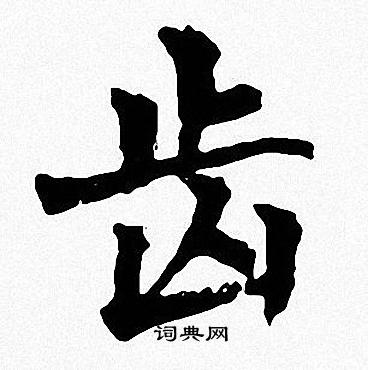 齿
词典网